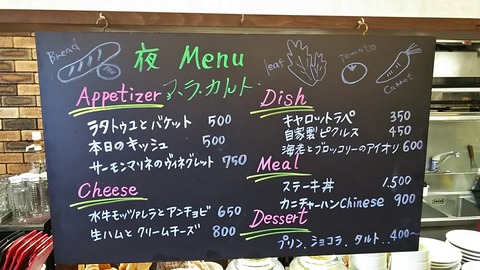 Bread
夜 Menu
leaf
Tomato
Carrot
ア・ラ・カルト
Appetizer
ラタトゥユとバケット 500
本日のキッシュ 500
サーモンマリネのヴィネグレット 750
Cheese
水牛モッツァレラとアンチョビ 650
生ハムとクリームチーズ 800
Dish
キャロットラペ 350
自家製ピクルス 450
海老とブロッコリーのアイオリ 600
Meal
ステーキ丼 1.500
カニチャーハンChinese 900
Dessert
プリン.ショコラ.タルト..400〜